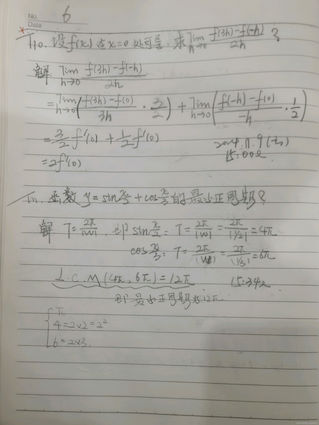 No. 6
Date
T10. 设f(x)在x=0处可导,求lim h→0 f(3h)-f(-h)/2h ?
解 lim h→0 f(3h)-f(-h)/2h
=lim h→0 (f(3h)-f(0)/3h · 3/2) + lim h→0 (f(-h)-f(0)/-h · 1/2)
=3/2 f'(0) + 1/2 f'(0)
=2f'(0)
15:00
T11. 函数 y=sin x/2 + cos x/3 的最小正周期?
解 T=2π/|w|. 即 sin x/2: T=2π/|w|=2π/|1/2|=4π
cos x/3: T=2π/|w|=2π/|1/3|=6π
L.C.M(4π,6π)=12π.
即最小正周期为12π
4=2×2=2²
6=2×3.